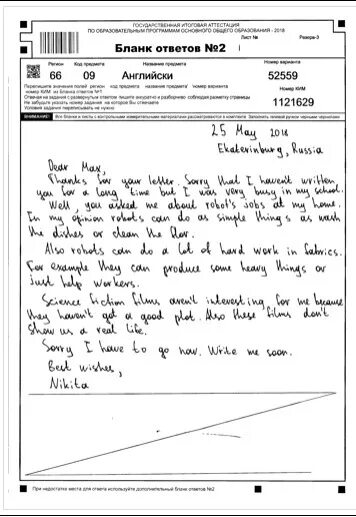 ГОСУДАРСТВЕННАЯ ИТОГОВАЯ АТТЕСТАЦИЯ
ПО ОБРАЗОВАТЕЛЬНЫМ ПРОГРАММАМ ОСНОВНОГО ОБЩЕГО ОБРАЗОВАНИЯ - 2018
Бланк ответов №2
Лист №
Резерв-3
Регион Код предмета Название предмета Номер варианта
66 09 Английски 52559
Перепишите значения полей регион код предмета название предмета номер варианта
номер КИМ из Бланка ответов №1
Номер КИМ
Отвечая на задания с развернутым ответом пишите аккуратно и разборчиво соблюдая разметку страницы
Не забудьте указать номер задания на которое Вы отвечаете
Условия задания переписывать не нужно
1121629
ВНИМАНИЕ! Все бланки и листы с контрольными измерительными материалами рассматриваются в комплекте. Заполнять гелевой ручкой черными чернилами
25 May 2018
Ekaterinburg, Russia
Dear Max,
Thanks for your letter. Sorry that I haven't written
you for a long time but I was very busy in my school.
Well, you asked me about robot's jobs at my home.
In my opinion robots can do as simple things as wash
the dishes or clean the flor.
Also robots can do a lot of hard work in fabrics.
For example they can produce some heavy things or
just help workers.
Science fiction films aren't interesting for me because
they haven't got a good plot. Also these films don't
show us a real life.
Sorry I have to go now. Write me soon.
Best wishes,
Nikita
При недостатке места для ответа используйте дополнительный бланк ответов №2